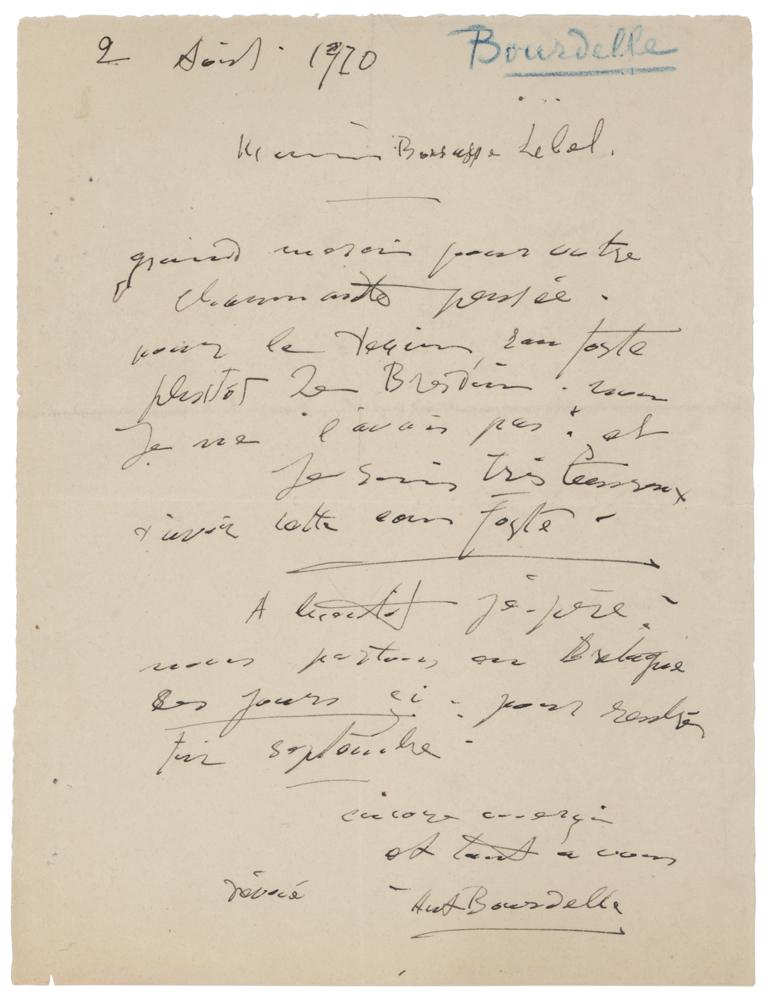 2 Août 1920 Bourdelle
Monsieur Bossuppe Lebel.
grand merci pour votre
charmante pensée.
pour le dessin, eau forte
plutôt de Bresdin. non
Je ne l'avais pas : et
Je suis très heureux
d'avoir cette eau forte -
A bientôt j'espère :
nous partons en Bretagne
ces jours ci : pour rentrer
fin septembre -
encore merci
et tout à vous
dévoué Ant Bourdelle